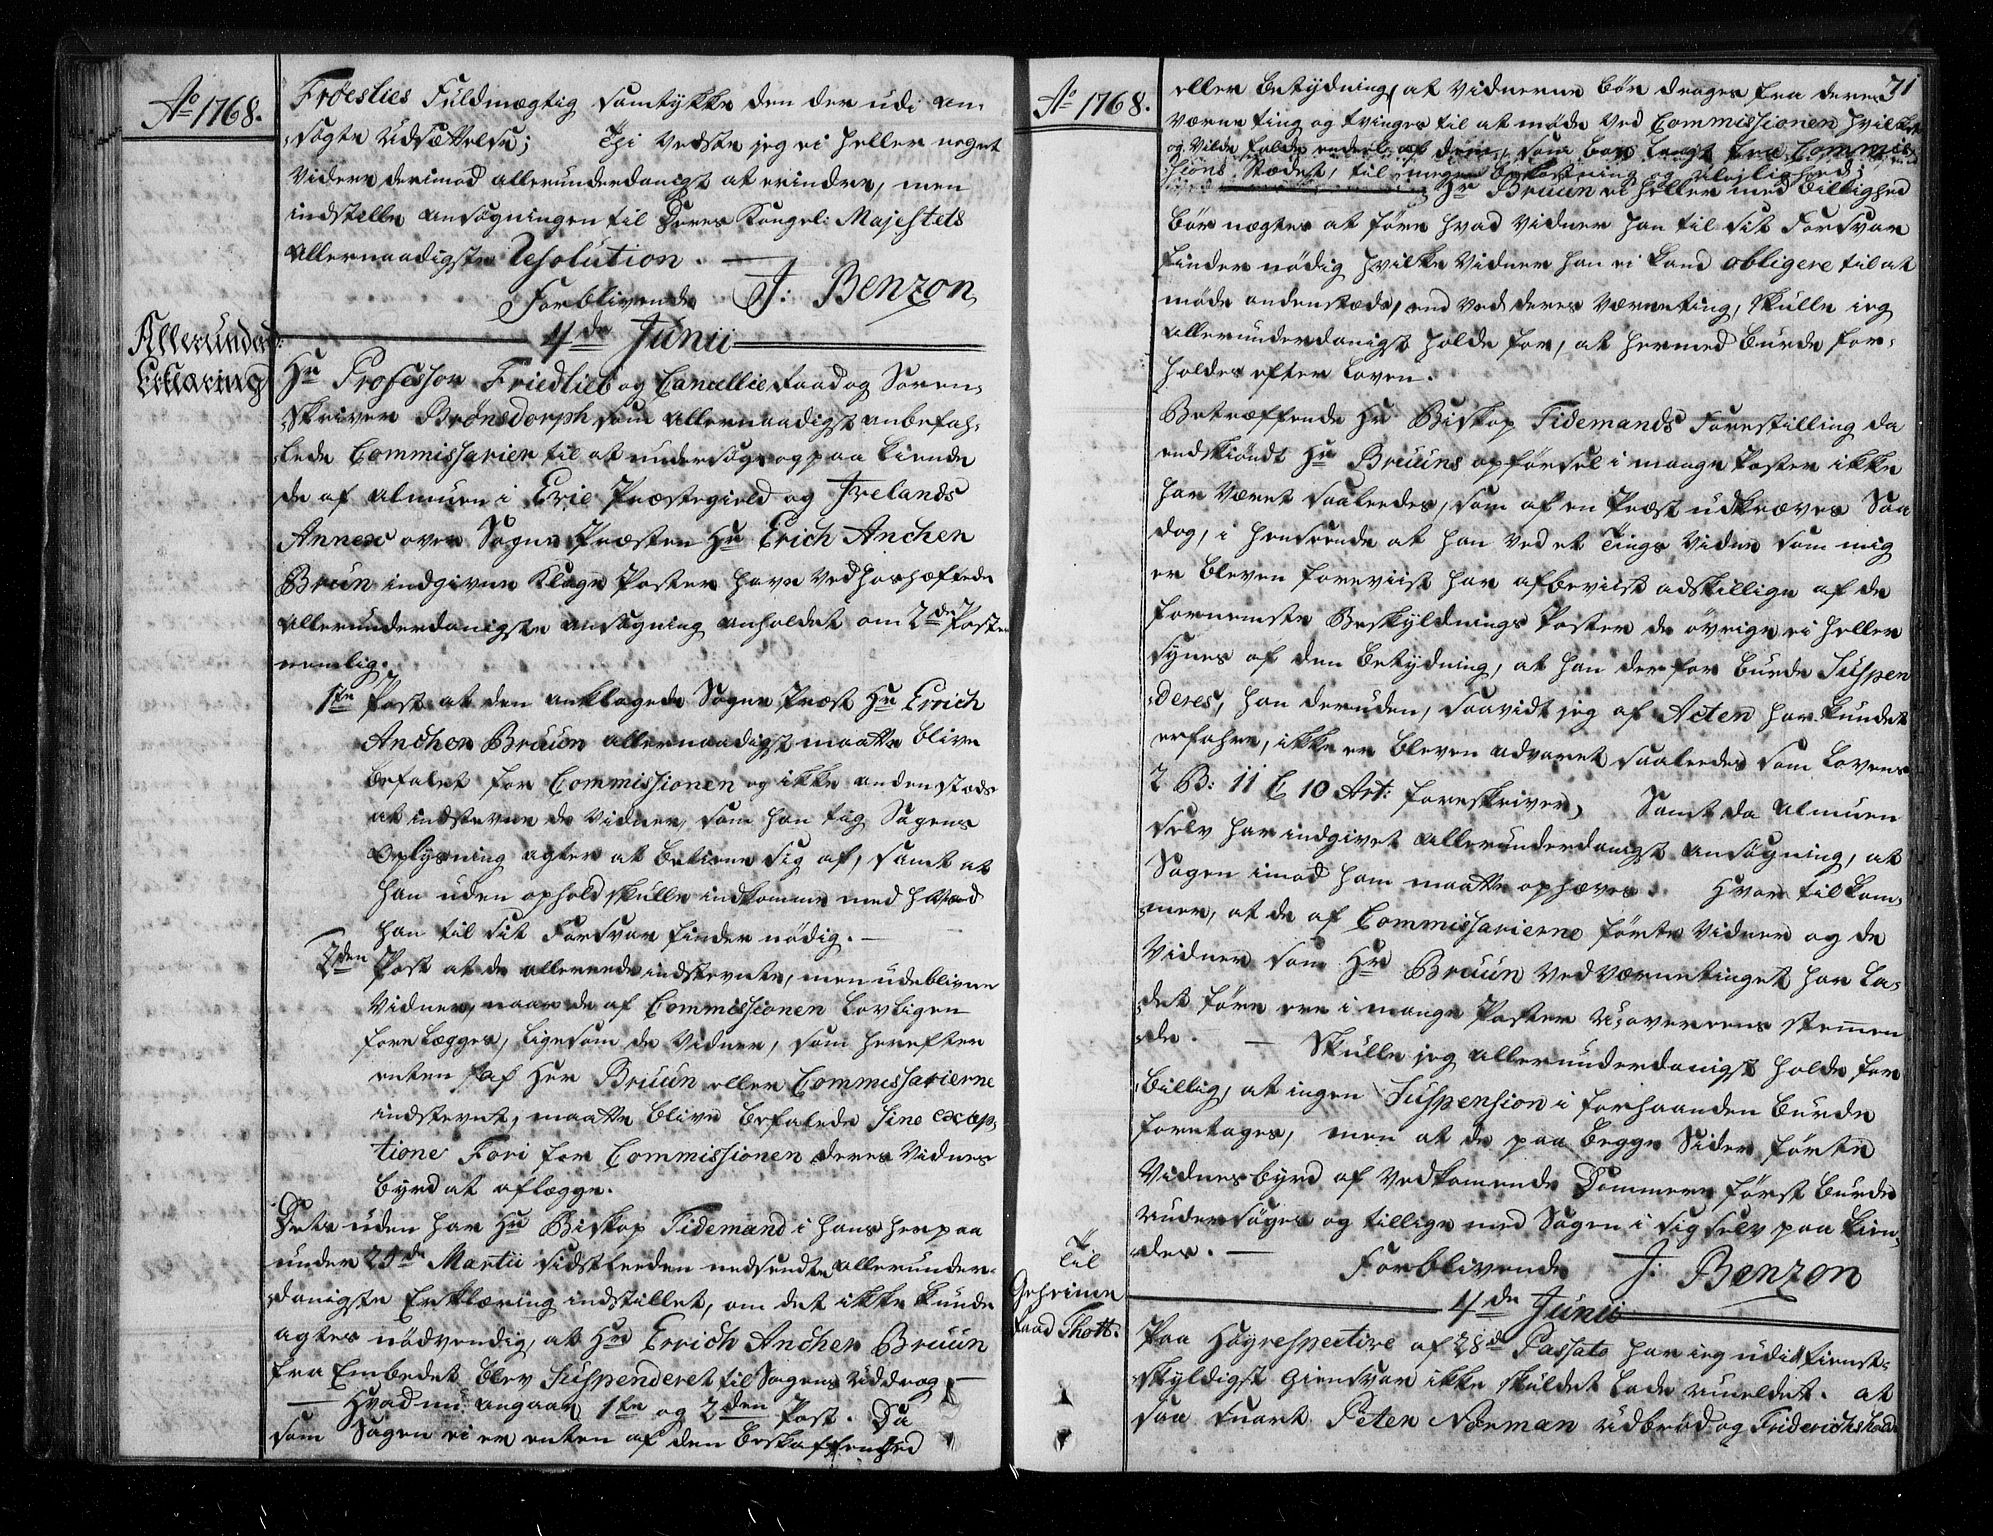 Ao 1768.
Frøeslies Fuldmægtig samtykke den der udi an-
søgte Udsættelse; Thi vedste jeg ei heller noget
videre derimod allerunderdanigst at erindre, men
indstille ansøgningen til Deres Kongel: Majestets
allernaadigste Resolution.
Forblivende J: Benzon
4de Junii
Allerunderd:
Erklæring
Hr Professor Friedlieb og Cancellie Raad og Soren-
skriver Brønsdorph som allernaadigst anbefah-
lede Commissarier til at undersøge og paa kiende
de af almuen i Evie Præstegield og Ivelands
Annex over Sogne Præsten Hr Erich Anchen
Bruun indgivne Klage Poster have ved hoshæftede
allerunderdanigste ansøgning anholdet om 2de Poster
nemlig.
1te Post at den anklagede Sogne Præst Hr Errich
Ancher Bruun allernaadigst maatte blive
befalet for Commissionen og ikke andenstæds
at indstevne de Vidner, som han tiig Sagens
Oplysning agter at betiene sig af, samt at
han uden ophold skulle indkomme med hvad
han til sit Forsvar finder nødig.
2den Post at de allerede indstevnte, men udeblivne
Vidner, naar de af Commissionen lovligen
forelægges, ligesom de Vidner, som herefter
enten af Herr Bruun eller Commissarierne
indstevnt, maatte blive befalede sine excep-
tione Fori for Commissionen deres Vidnes
byrd at aflægge.
Desuden har Hr Biskop Tidemand i hans herpaa
under 25de Martii sidstleeden nedsendte allerunder-
danigste Erklæring indstillet, om det ikke kunde
agtes nødvendig, at Hr Errich Ancher Bruun
fra Embedet blev Suspenderet til Sagens Uddrag
Hvad nu angaar 1te og 2den Post. Da
som Sagen ei er enten af den beskaffenhed
Ao 1768.
71
eller betydning, at Vidnerne bør drages fra deres
værne ting og tvinges til at møde ved Commissionen hvilket
og vilde falde endeel af dem, som boer langt fra Commis-
sions Stædet, til megen bekostning og uleilighed;
Hr Bruun ei heller med billighed
bør nægtes at føre hvad Vidner han til sit Forsvar
finder nødig hvilke Vidner han ei kand obligere til at
møde andenstæds, end ved deres værneting, skulle jeg
allerunderdanigst holde for, at hermed burde for-
holdes efter Loven.
Betræffende Hr Biskop Tidemands Forestilling da
endskiøndt Hr Bruuns opførsel i mange Poster ikke
har været saaleedes, som af en Præst udkræves Saa
dog, i henseende at han ved et Tings Vidne som mig
er bleven foreviist har afbeviist adskillige af de
fornemste Beskyldnings Poster de øvrige ei heller
synes af den betydning, at han derfor burde Suspen
deres, han deruden, saavidt jeg af Acten har kundet
erfahre, ikke er bleven advaret saaleedes som Lovens
2 B: 11 C 10 Art: foreskriver, Samt da almuen
selv har indgivet allerunderdanigst ansøgning, at
Sagen imod ham maatte ophæves. Hvortil kom-
mer, at de af Commissarierne førte Vidner og de
Vidner som Hr Bruun ved værnetinget har la-
det føre ere i mange Poster u-overeens stemen
de. Skulle jeg allerunderdanigst holde for
billig, at ingen Suspension i forhaanden burde
foretages, men at de paa begge Sider førte
Vidnesbyrd af vedkomende Dommere først burde
undersøges og tillige med Sagen i sig selv paa kien-
des.
Forblivende J: Benzon
4de Junii
Til
Geheime
raad Thott.
Paa Høyrespective af 28de Passato har jeg udi tienst-
skyldigst Giensvar ikke skuldet lade umeldet. at
saa snart Peter Norman Udbrød og Friderichshald